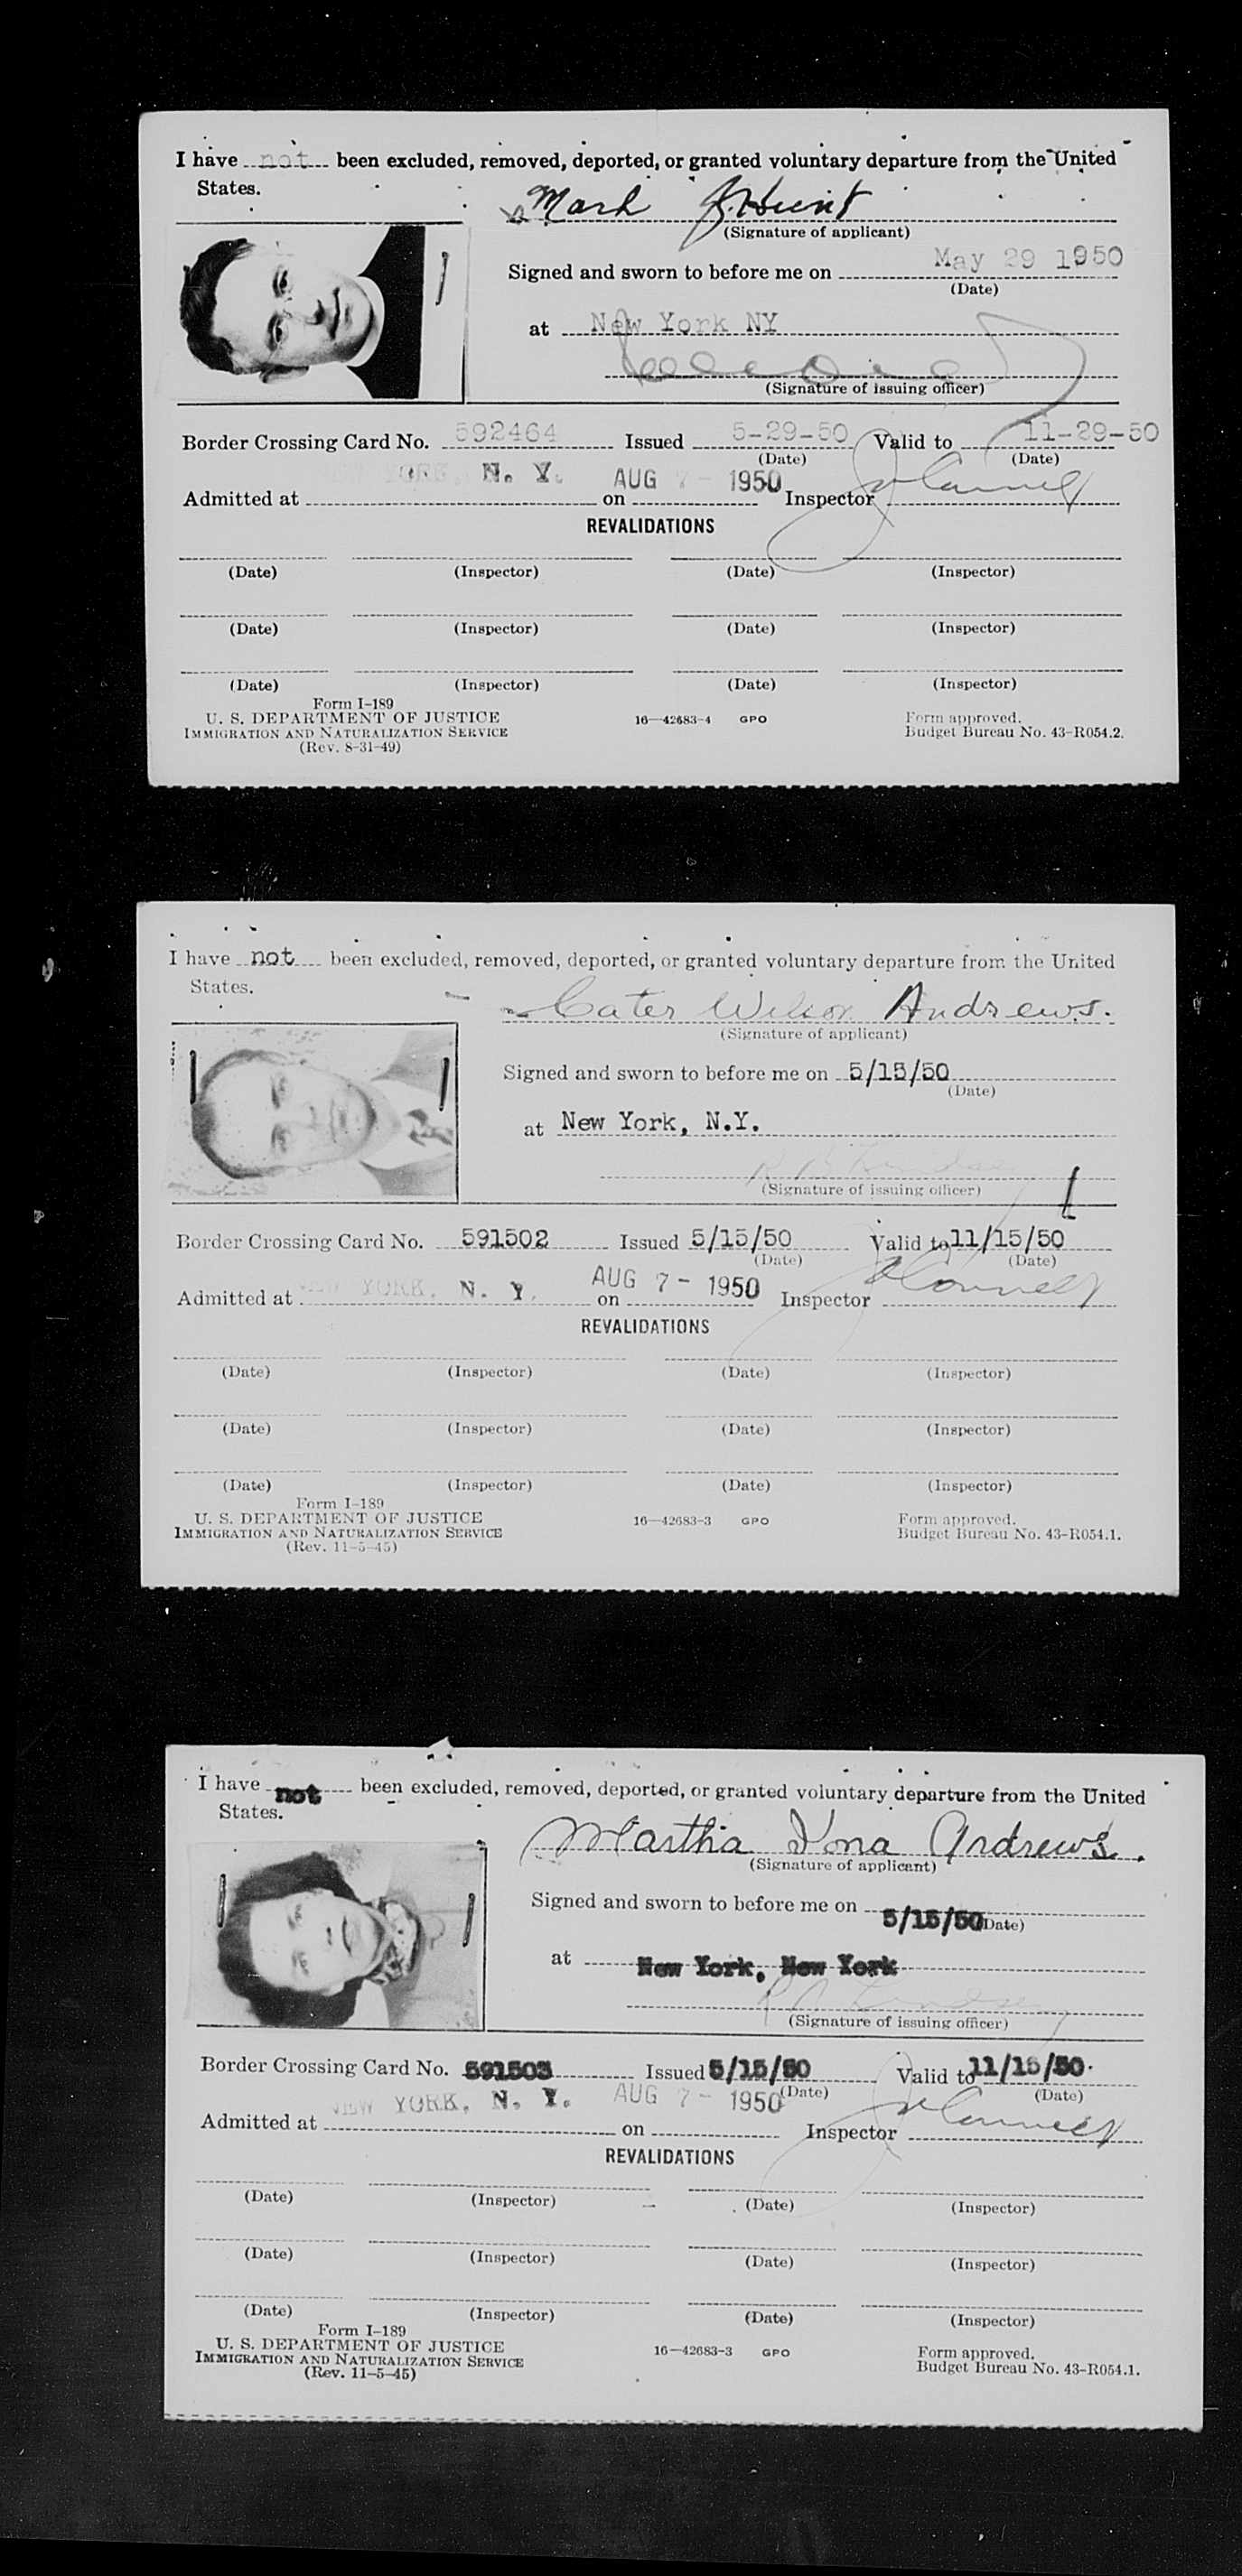 I have not been excluded, removed, deported, or granted voluntary departure from the United
States.
Mark J. Hunt
(Signature of applicant)
Signed and sworn to before me on May 29 1950
(Date)
at New York NY
(Signature of issuing officer)
Border Crossing Card No. 592464 Issued 5-29-50 Valid to 11-29-50
(Date) (Date)
Admitted at YORK, N. Y. on AUG 7 - 1950 Inspector
REVALIDATIONS
(Date) (Inspector) (Date) (Inspector)
(Date) (Inspector) (Date) (Inspector)
(Date) (Inspector) (Date) (Inspector)
Form I-189
U. S. DEPARTMENT OF JUSTICE 16—42683-4 GPO Form approved.
IMMIGRATION AND NATURALIZATION SERVICE Budget Bureau No. 43-R054.2.
(Rev. 8-31-49)
I have not been excluded, removed, deported, or granted voluntary departure from the United
States.
Cater Wilson Andrews.
(Signature of applicant)
Signed and sworn to before me on 5/15/50
(Date)
at New York, N.Y.
(Signature of issuing officer)
Border Crossing Card No. 591502 Issued 5/15/50 Valid to 11/15/50
(Date) (Date)
Admitted at NEW YORK, N. Y. on AUG 7 - 1950 Inspector
REVALIDATIONS
(Date) (Inspector) (Date) (Inspector)
(Date) (Inspector) (Date) (Inspector)
(Date) (Inspector) (Date) (Inspector)
Form I-189
U. S. DEPARTMENT OF JUSTICE 16—42683-3 GPO Form approved.
IMMIGRATION AND NATURALIZATION SERVICE Budget Bureau No. 43-R054.1.
(Rev. 11-5-45)
I have not been excluded, removed, deported, or granted voluntary departure from the United
States.
Martha Iona Andrews.
(Signature of applicant)
Signed and sworn to before me on 5/15/50
(Date)
at New York, New York
(Signature of issuing officer)
Border Crossing Card No. 591503 Issued 5/15/50 Valid to 11/15/50.
(Date) (Date)
Admitted at NEW YORK, N. Y. on AUG 7 - 1950 Inspector
REVALIDATIONS
(Date) (Inspector) (Date) (Inspector)
(Date) (Inspector) (Date) (Inspector)
(Date) (Inspector) (Date) (Inspector)
Form I-189
U. S. DEPARTMENT OF JUSTICE 16—42683-3 GPO Form approved.
IMMIGRATION AND NATURALIZATION SERVICE Budget Bureau No. 43-R054.1.
(Rev. 11-5-45)